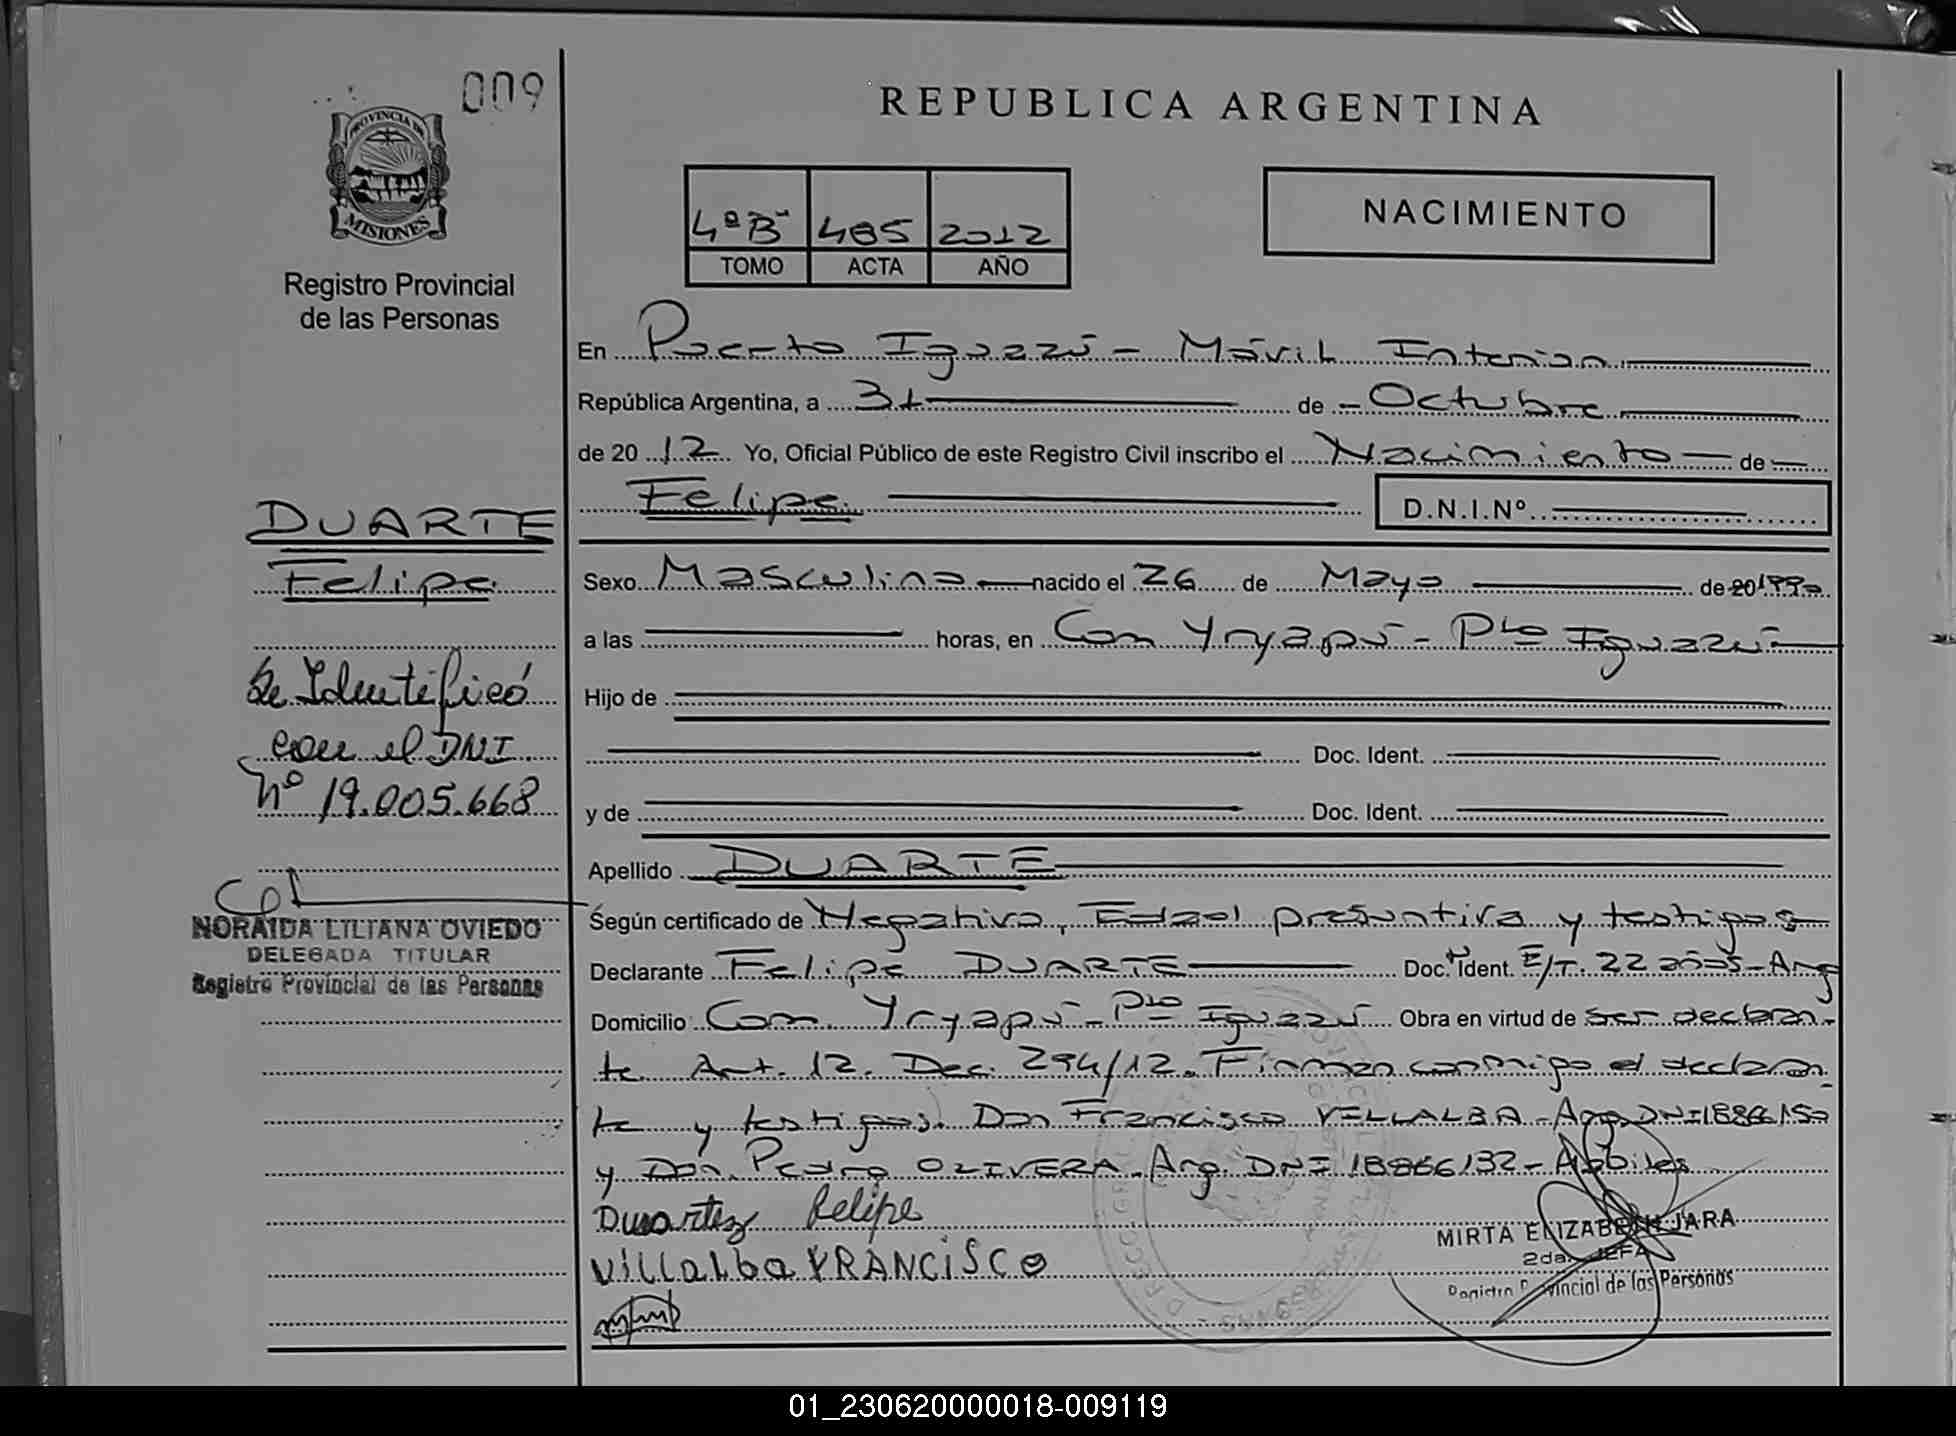 009
PROVINCIA DE
MISIONES
Registro Provincial
de las Personas
DUARTE
Felipe
Se Identificó
con el DNI
nº 19.005.668
NORAIDA LILIANA OVIEDO
DELEGADA TITULAR
Registro Provincial de las Personas
REPUBLICA ARGENTINA
4º Bⁱˢ 485 2012
TOMO ACTA AÑO
NACIMIENTO
En Puerto Iguazú - Móvil Interior
República Argentina, a 31 de - Octubre
de 20 12 Yo, Oficial Público de este Registro Civil inscribo el Nacimiento de
Felipe D.N.I.Nº
Sexo Masculino nacido el 26 de Mayo de 20 1990
a las horas, en Com Yryapú - Pto Iguazú
Hijo de
Doc. Ident.
y de Doc. Ident.
Apellido DUARTE
Según certificado de Negativo, Edad presuntiva y testigos
Declarante Felipe DUARTE Doc. Ident. E/T. - Arg
Domicilio Com. Yryapú - Pto Iguazú Obra en virtud de ser declaran-
te Art. 12. Dec. 294/12. Firman conmigo el declaran-
te y testigos. Don Francisco VILLALBA - Arg DNI 18866150
y Don Pedro OLIVERA - Arg. DNI 18866132 - Hábiles
Duartez Felipe
Villalba FRANCISCO
MIRTA ELIZABETH JARA
2da. JEFA
Registro Provincial de las Personas
01_230620000018-009119